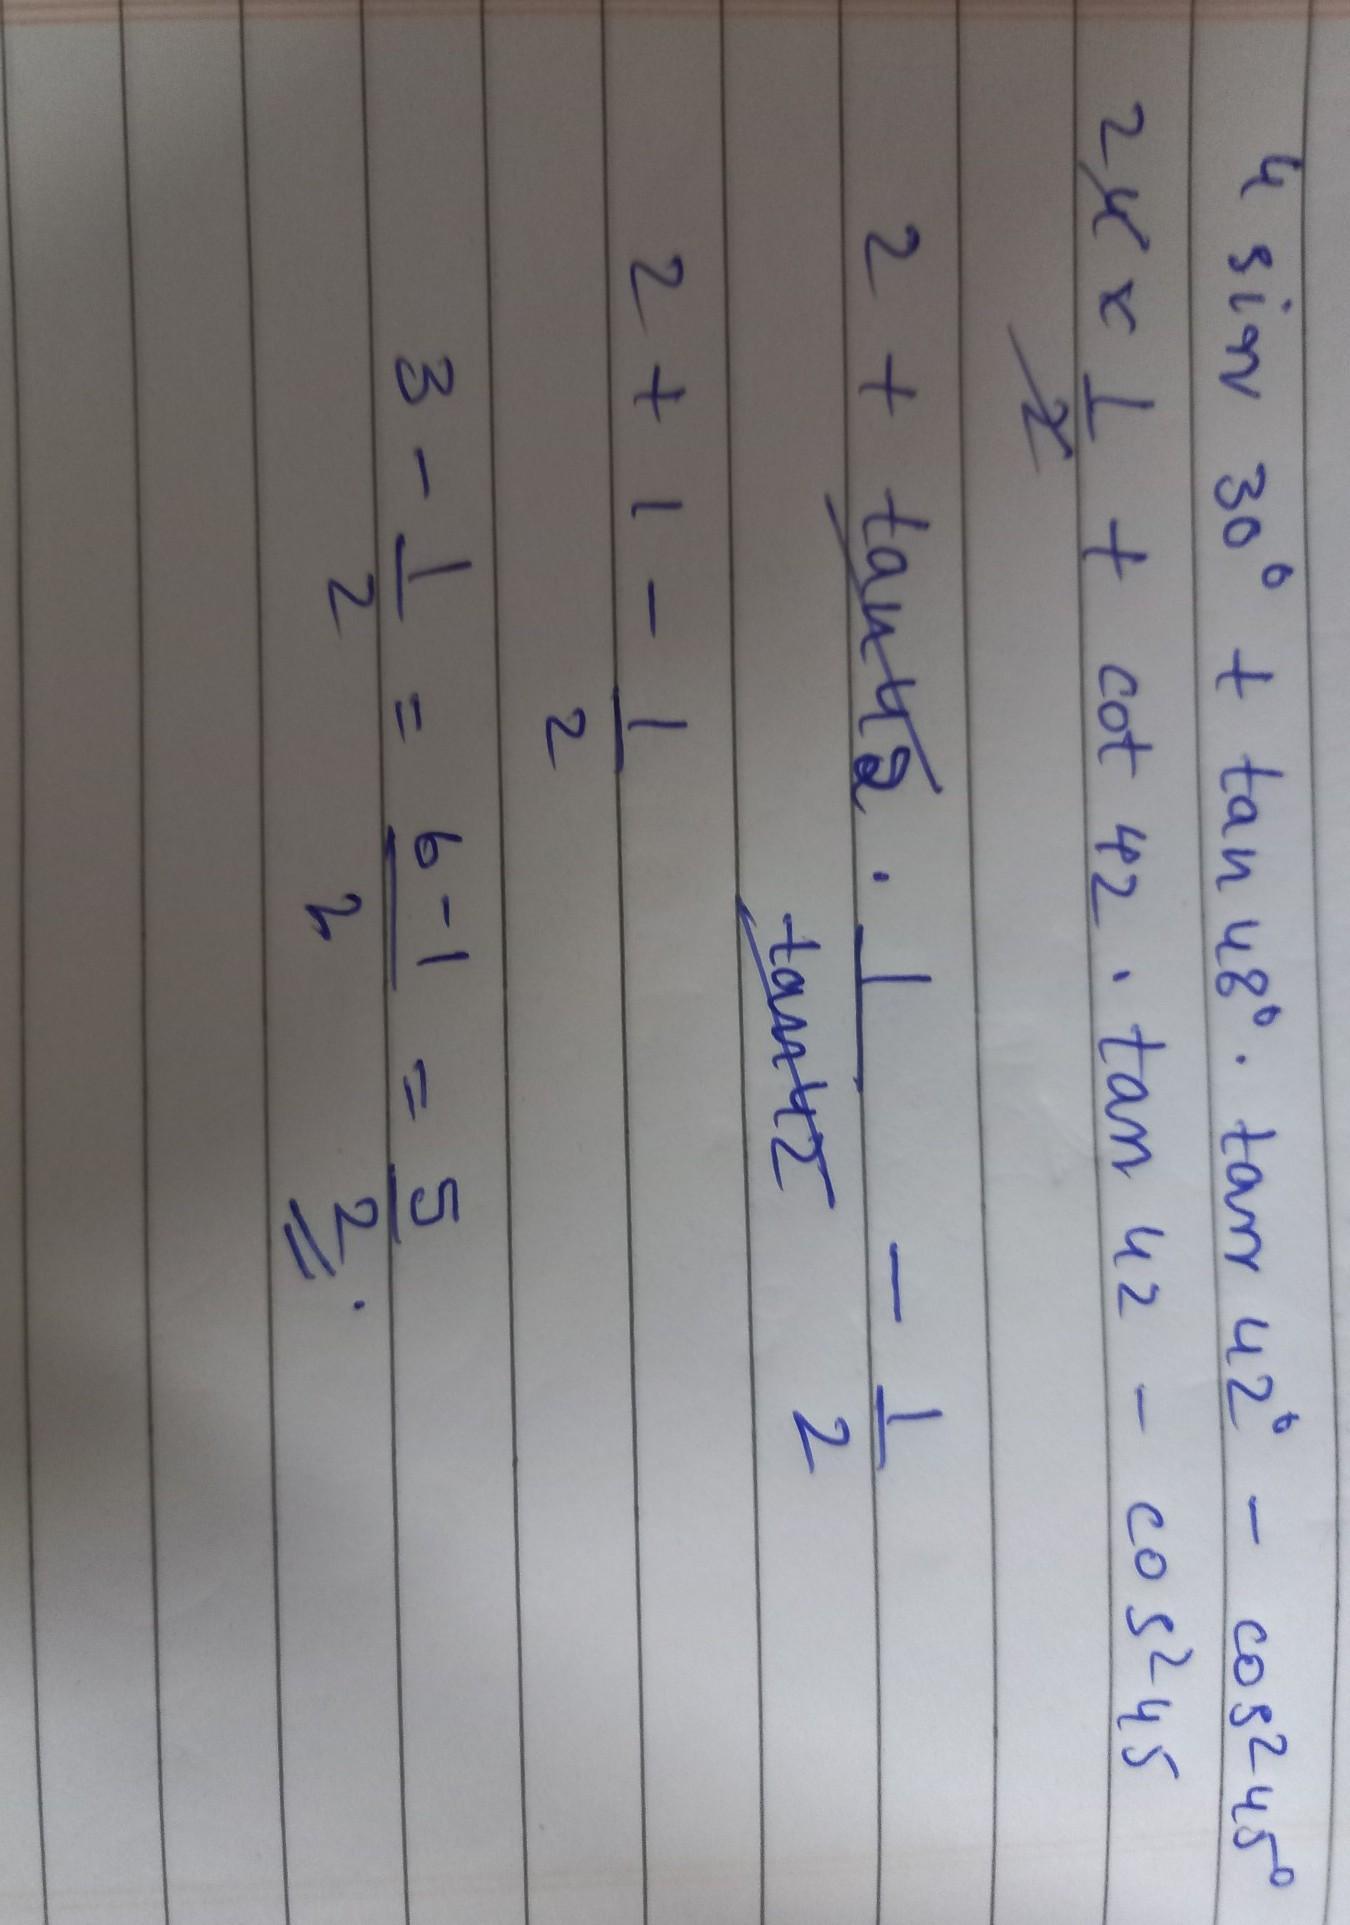 4 sin 30° + tan 48° . tan 42° - cos² 45°
2 4 x 1/2 + cot 42 . tan 42 - cos² 45
2 + tan 42 . 1/tan 42 - 1/2
2 + 1 - 1/2
3 - 1/2 = 6-1/2 = 5/2 .